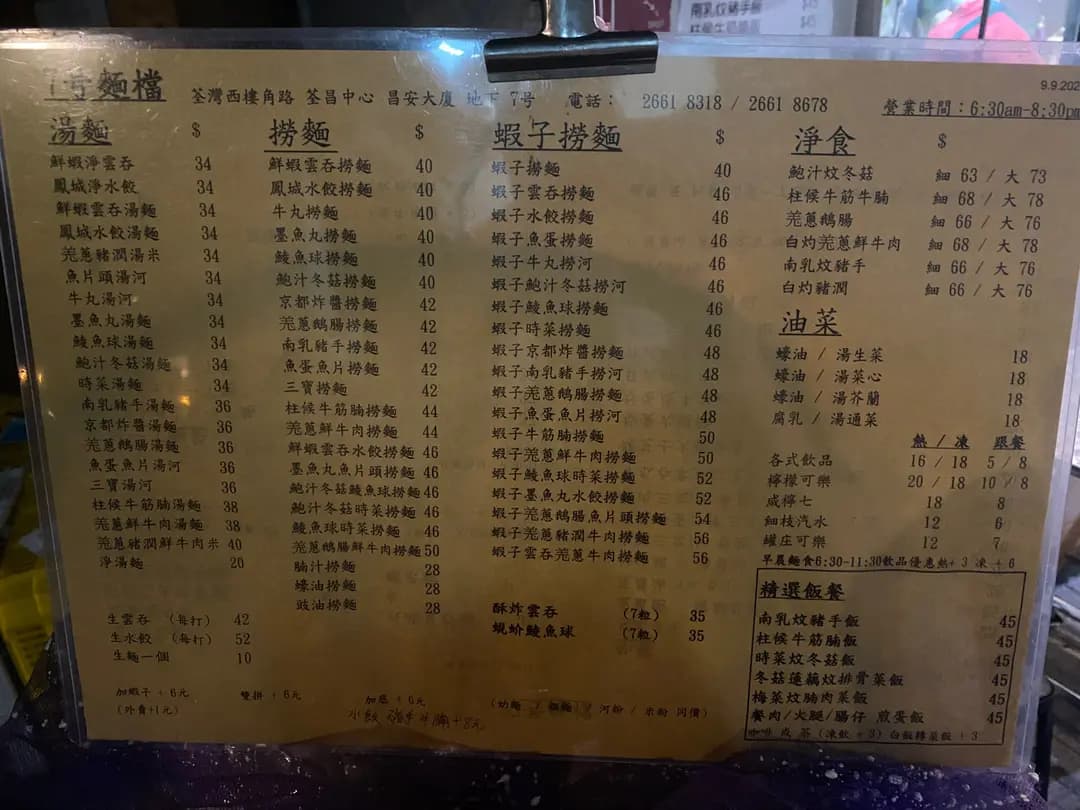 南乳炆豬手飯 $45
柱侯牛筋腩飯 $45
9.9.202
1号麵檔 荃灣西樓角路 荃昌中心 昌安大廈 地下 7号 電話： 2661 8318 / 2661 8678
營業時間：6:30am-8:30pm
湯麵 $
鮮蝦淨雲吞 34
鳳城淨水餃 34
鮮蝦雲吞湯麵 34
鳳城水餃湯麵 34
羗蔥豬潤湯米 34
魚片頭湯河 34
牛丸湯河 34
墨魚丸湯麵 34
鯪魚球湯麵 34
鮑汁冬菇湯麵 34
時菜湯麵 34
南乳豬手湯麵 36
京都炸醬湯麵 36
羗蔥鵝腸湯麵 36
魚蛋魚片湯河 36
三寶湯河 36
柱候牛筋腩湯麵 38
羗蔥鮮牛肉湯麵 38
羗蔥豬潤鮮牛肉米 40
淨湯麵 20
生雲吞 （每打） 42
生水餃 （每打） 52
生麵一個 10
撈麵 $
鮮蝦雲吞撈麵 40
鳳城水餃撈麵 40
牛丸撈麵 40
墨魚丸撈麵 40
鯪魚球撈麵 40
鮑汁冬菇撈麵 40
京都炸醬撈麵 42
羗蔥鵝腸撈麵 42
南乳豬手撈麵 42
魚蛋魚片撈麵 42
三寶撈麵 42
柱候牛筋腩撈麵 44
羗蔥鮮牛肉撈麵 44
鮮蝦雲吞水餃撈麵 46
墨魚丸魚片頭撈麵 46
鮑汁冬菇鯪魚球撈麵 46
鮑汁冬菇時菜撈麵 46
鯪魚球時菜撈麵 46
羗蔥鵝腸鮮牛肉撈麵 50
腩汁撈麵 28
蠔油撈麵 28
豉油撈麵 28
蝦子撈麵 $
蝦子撈麵 40
蝦子雲吞撈麵 46
蝦子水餃撈麵 46
蝦子魚蛋撈麵 46
蝦子牛丸撈河 46
蝦子鮑汁冬菇撈河 46
蝦子鯪魚球撈麵 46
蝦子時菜撈麵 46
蝦子京都炸醬撈麵 48
蝦子南乳豬手撈河 48
蝦子羗蔥鵝腸撈麵 48
蝦子魚蛋魚片撈河 48
蝦子牛筋腩撈麵 50
蝦子羗蔥鮮牛肉撈麵 50
蝦子鯪魚球時菜撈麵 52
蝦子墨魚丸水餃撈麵 52
蝦子羗蔥鵝腸魚片頭撈麵 54
蝦子羗蔥豬潤牛肉撈麵 56
蝦子雲吞羗蔥牛肉撈麵 56
酥炸雲吞 （7粒） 35
蜆蚧鯪魚球 （7粒） 35
淨食 $
鮑汁炆冬菇 細 63 / 大 73
柱候牛筋牛腩 細 68 / 大 78
羗蔥鵝腸 細 66 / 大 76
白灼羗蔥鮮牛肉 細 68 / 大 78
南乳炆豬手 細 66 / 大 76
白灼豬潤 細 66 / 大 76
油菜
蠔油 / 湯生菜 18
蠔油 / 湯菜心 18
蠔油 / 湯芥蘭 18
腐乳 / 湯通菜 18
熱 / 凍 跟餐
各式飲品 16 / 18 5 / 8
檸檬可樂 20 / 18 10 / 8
咸檸七 18 8
細枝汽水 12 6
罐庄可樂 12 7
早晨麵食6:30-11:30飲品優惠熱+ 3 凍 + 6
精選飯餐
南乳炆豬手飯 45
柱候牛筋腩飯 45
時菜炆冬菇飯 45
冬菇蓮藕炆排骨菜飯 45
梅菜炆腩肉菜飯 45
餐肉/火腿/腸仔 煎蛋飯 45
咖啡 或 茶 (凍飲 + 3) 白飯轉菜飯 + 3
加蝦子 + 6元 雙拼 + 6元 加底 + 6元 (幼麵 / 粗麵 / 河粉 / 米粉 同價)
(外賣+1元)